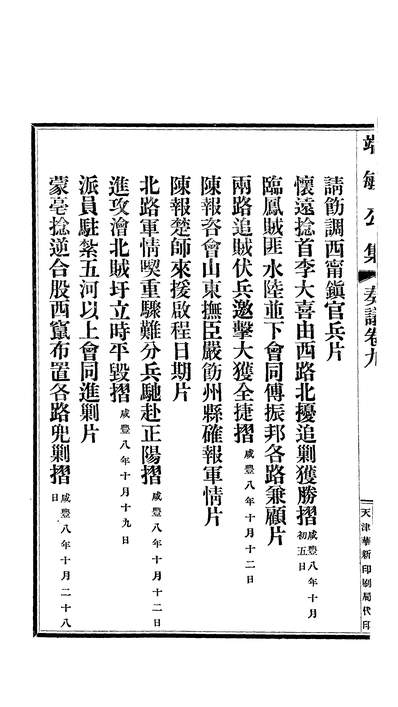 端敏公集 奏議卷九
天津華新印刷局代印
請飭調西甯鎮官兵片
懷遠捻首李大喜由西路北擾追剿獲勝摺 咸豐八年十月初五日
臨鳳賊匪水陸並下會同傅振邦各路兼顧片
兩路追賊伏兵邀擊大獲全捷摺 咸豐八年十月十二日
陳報咨會山東撫臣嚴飭州縣確報軍情片
陳報楚師來援啟程日期片
北路軍情喫重驟難分兵馳赴正陽摺 咸豐八年十月十二日
進攻澮北賊圩立時平毀摺 咸豐八年十月十九日
派員駐紮五河以上會同進剿片
蒙亳捻逆合股西竄布置各路兜剿摺 咸豐八年十月二十八日